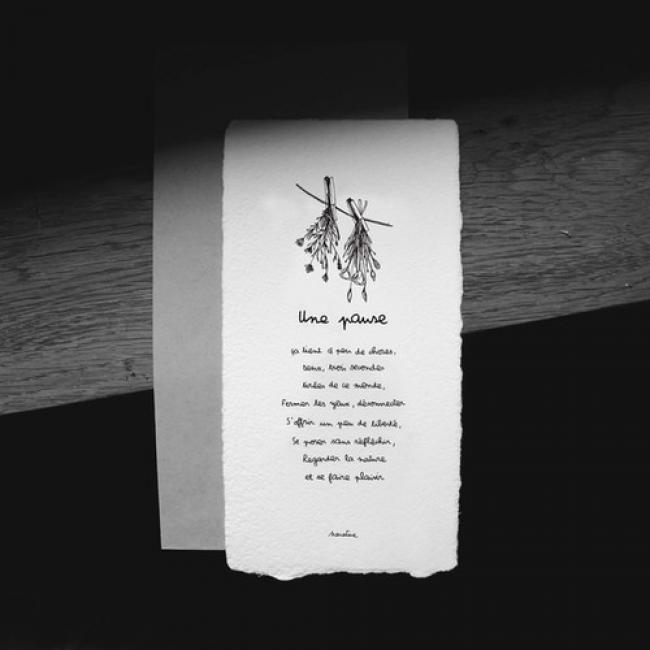 Une pause
ça tient à peu de choses,
Deux, trois secondes
tirées de ce monde,
Fermer les yeux, déconnecter
S'offrir un peu de liberté,
Se poser sans réfléchir,
Regarder la nature
et se faire plaisir